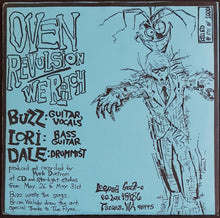 OVEN
REVULSION
WE REACH
BUZZ: GUITAR,
VOCALS
LORI: BASS
GUITAR
DALE: DRUMMIST
produced and recorded by
Mark Deutrom
at CD and Starlight studios
from May 26 to May 31st
Buzz wrote the songs.
Brian Walsby drew the art
special thanks to Tom Flynn.
PO BOX
WA 98445